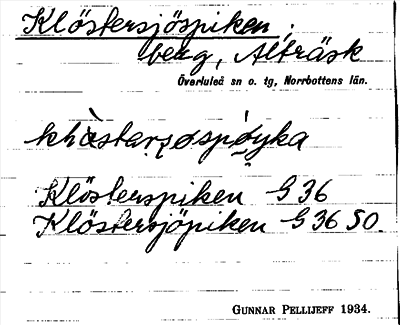 Klöstersjöspiken,
berg, Alträsk
Överluleå sn o. tg, Norrbottens län.
Klösterspiken G 36
Klöstersjöpiken G 36 SO.
GUNNAR PELLIJEFF 1934.